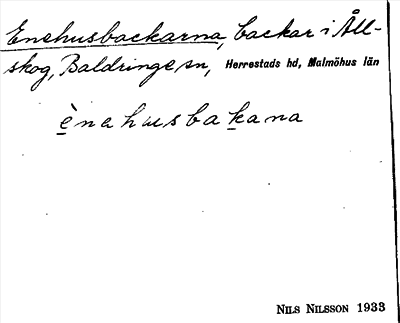 Enehusbackarna, backar i Äll-
skog, Baldringe sn, Herrestads hd, Malmöhus län
ènehusbakana
NILS NILSSON 1933